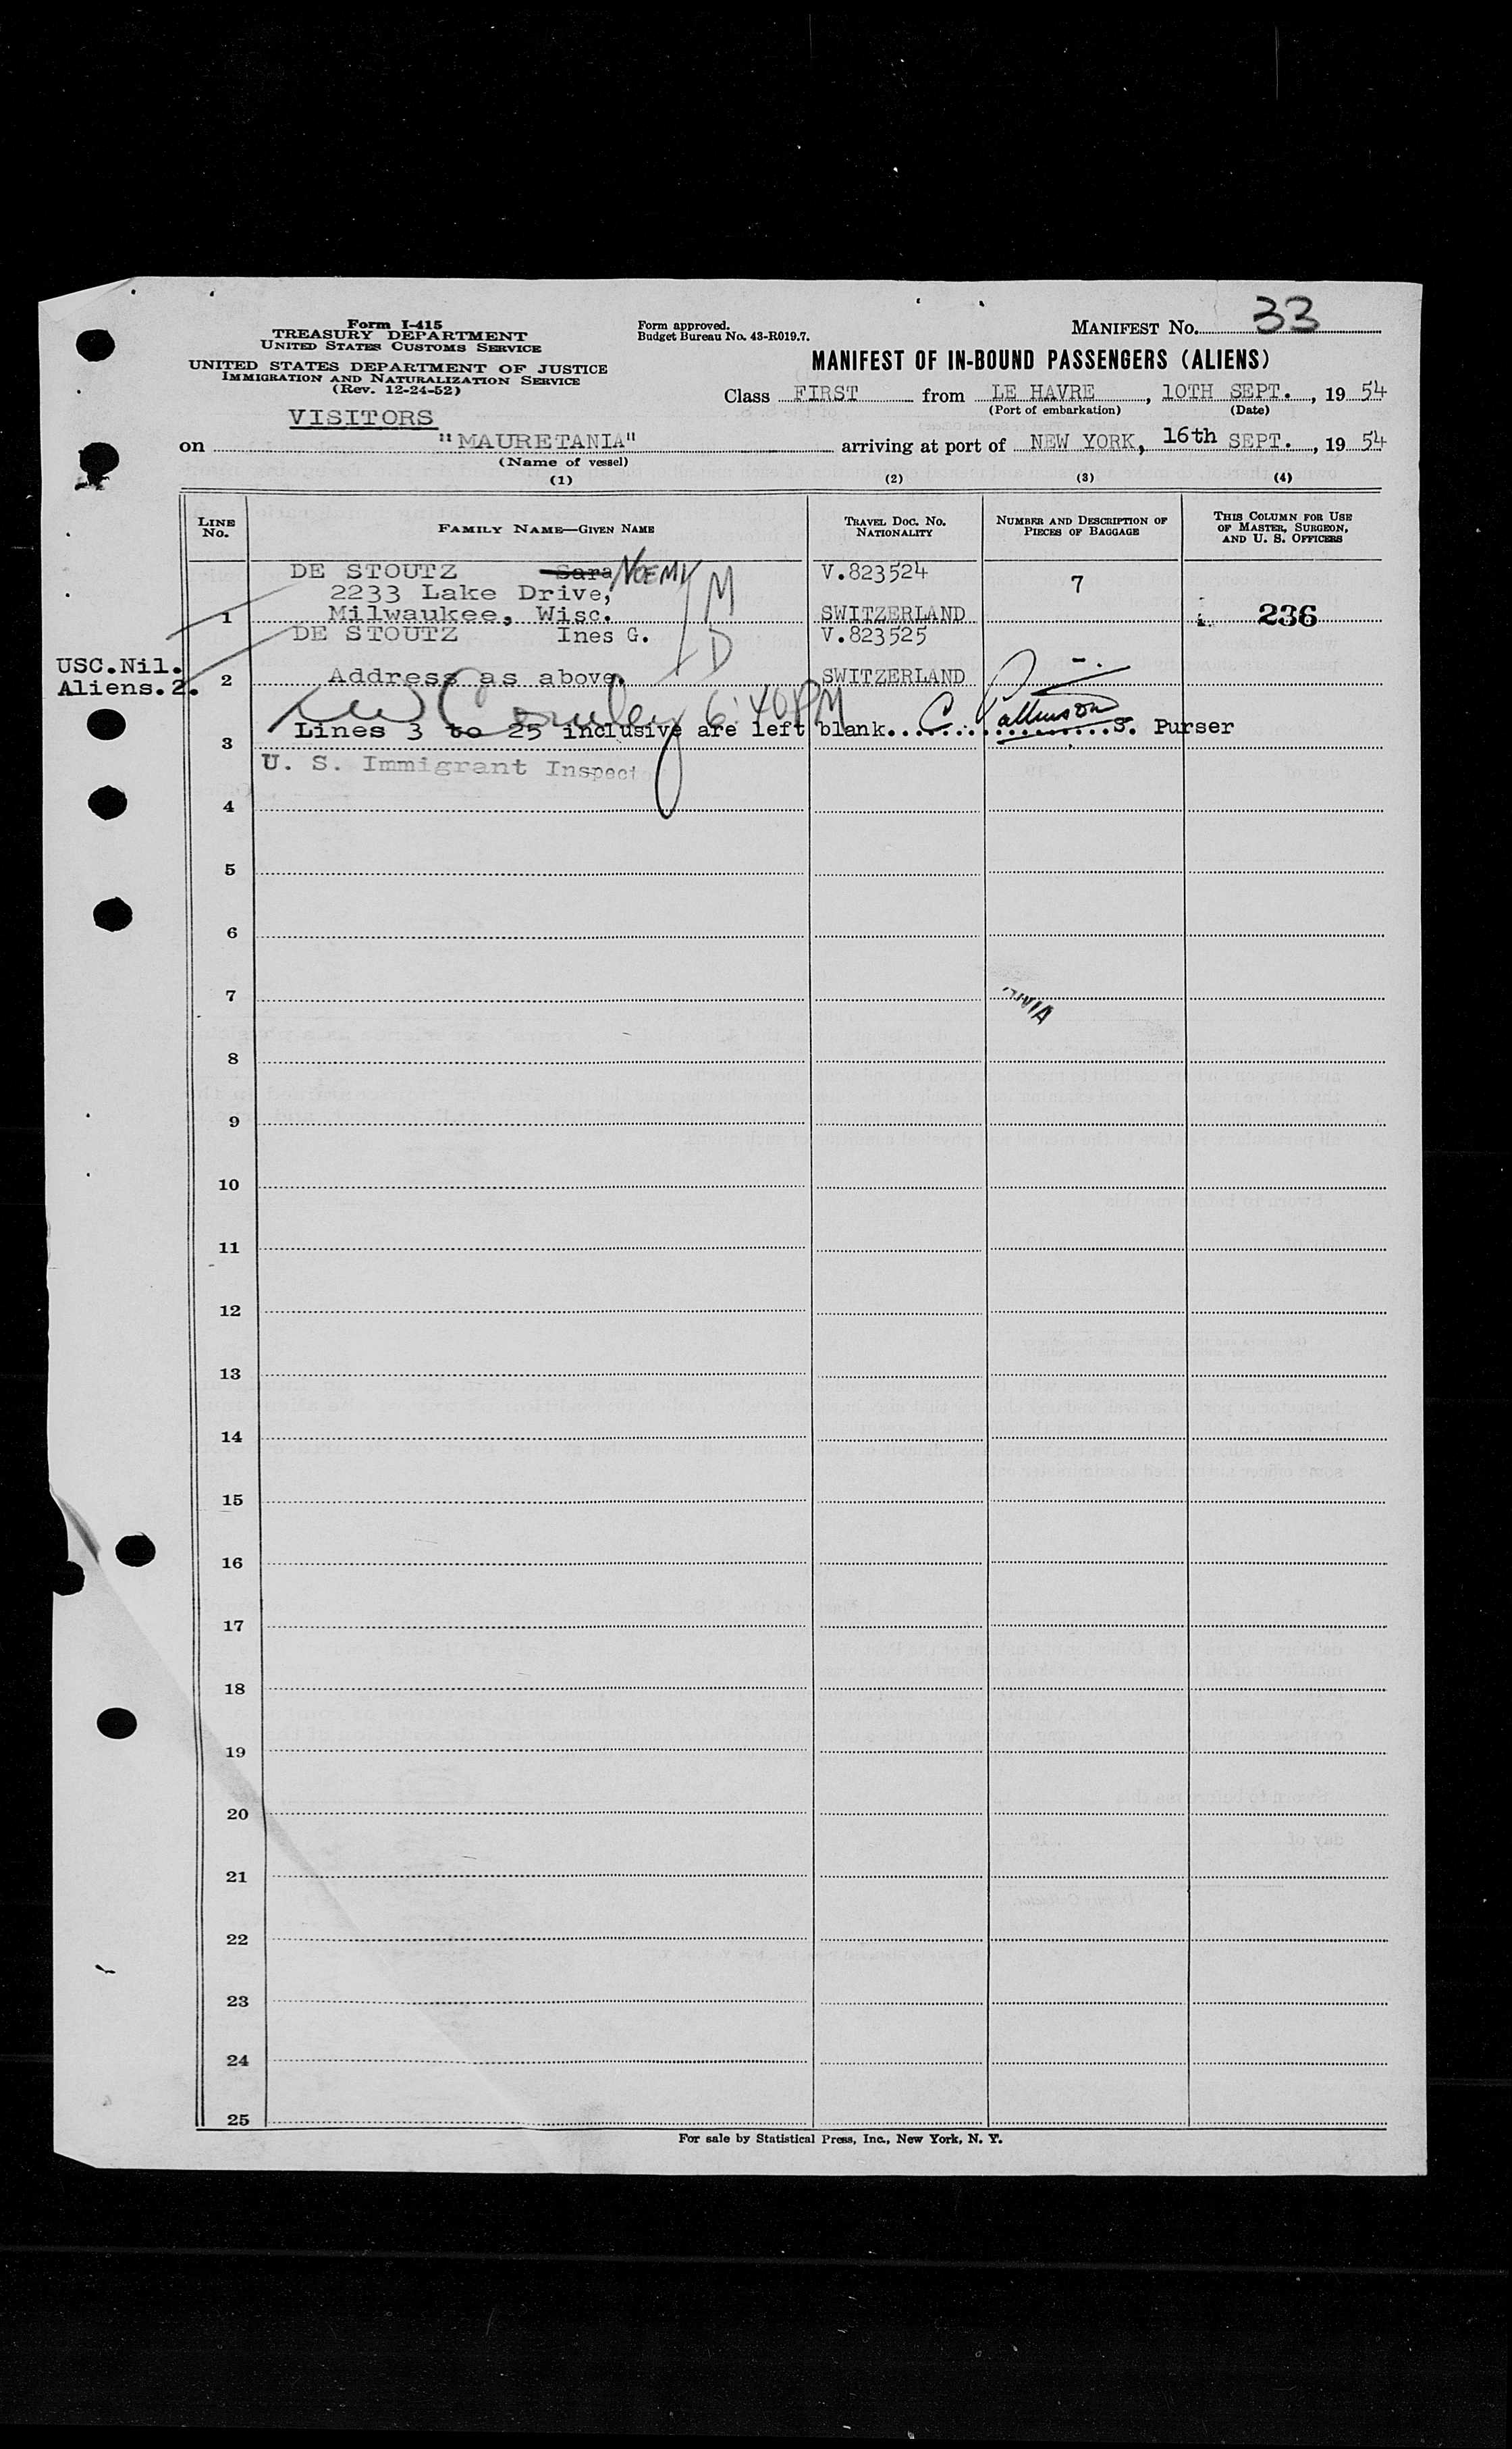 Form I-415
TREASURY DEPARTMENT
UNITED STATES CUSTOMS SERVICE
UNITED STATES DEPARTMENT OF JUSTICE
IMMIGRATION AND NATURALIZATION SERVICE
(Rev. 12-24-52)
Form approved.
Budget Bureau No. 43-R019.7.
MANIFEST NO. 33
MANIFEST OF IN-BOUND PASSENGERS (ALIENS)
Class FIRST from LE HAVRE, 10TH SEPT., 19 54
(Port of embarkation) (Date)
VISITORS
on "MAURETANIA" arriving at port of NEW YORK, 16th SEPT., 19 54
(Name of vessel)
(1) (2) (3) (4)
LINE NO.
FAMILY NAME—GIVEN NAME
TRAVEL DOC. NO. NATIONALITY
NUMBER AND DESCRIPTION OF PIECES OF BAGGAGE
THIS COLUMN FOR USE OF MASTER, SURGEON, AND U. S. OFFICERS
DE STOUTZ Sara NOEMY M V.823524 7
2233 Lake Drive,
1 Milwaukee, Wisc. SWITZERLAND 236
DE STOUTZ Ines G. D V.823525
USC.Nil.
Aliens.2.
2 Address as above. SWITZERLAND -.
6:40 PM
Lines 3 to 25 inclusive are left blank. C. S. Purser
3
U. S. Immigrant Inspect
4
5
6
7
8
9
10
11
12
13
14
15
16
17
18
19
20
21
22
23
24
25
For sale by Statistical Press, Inc., New York, N. Y.